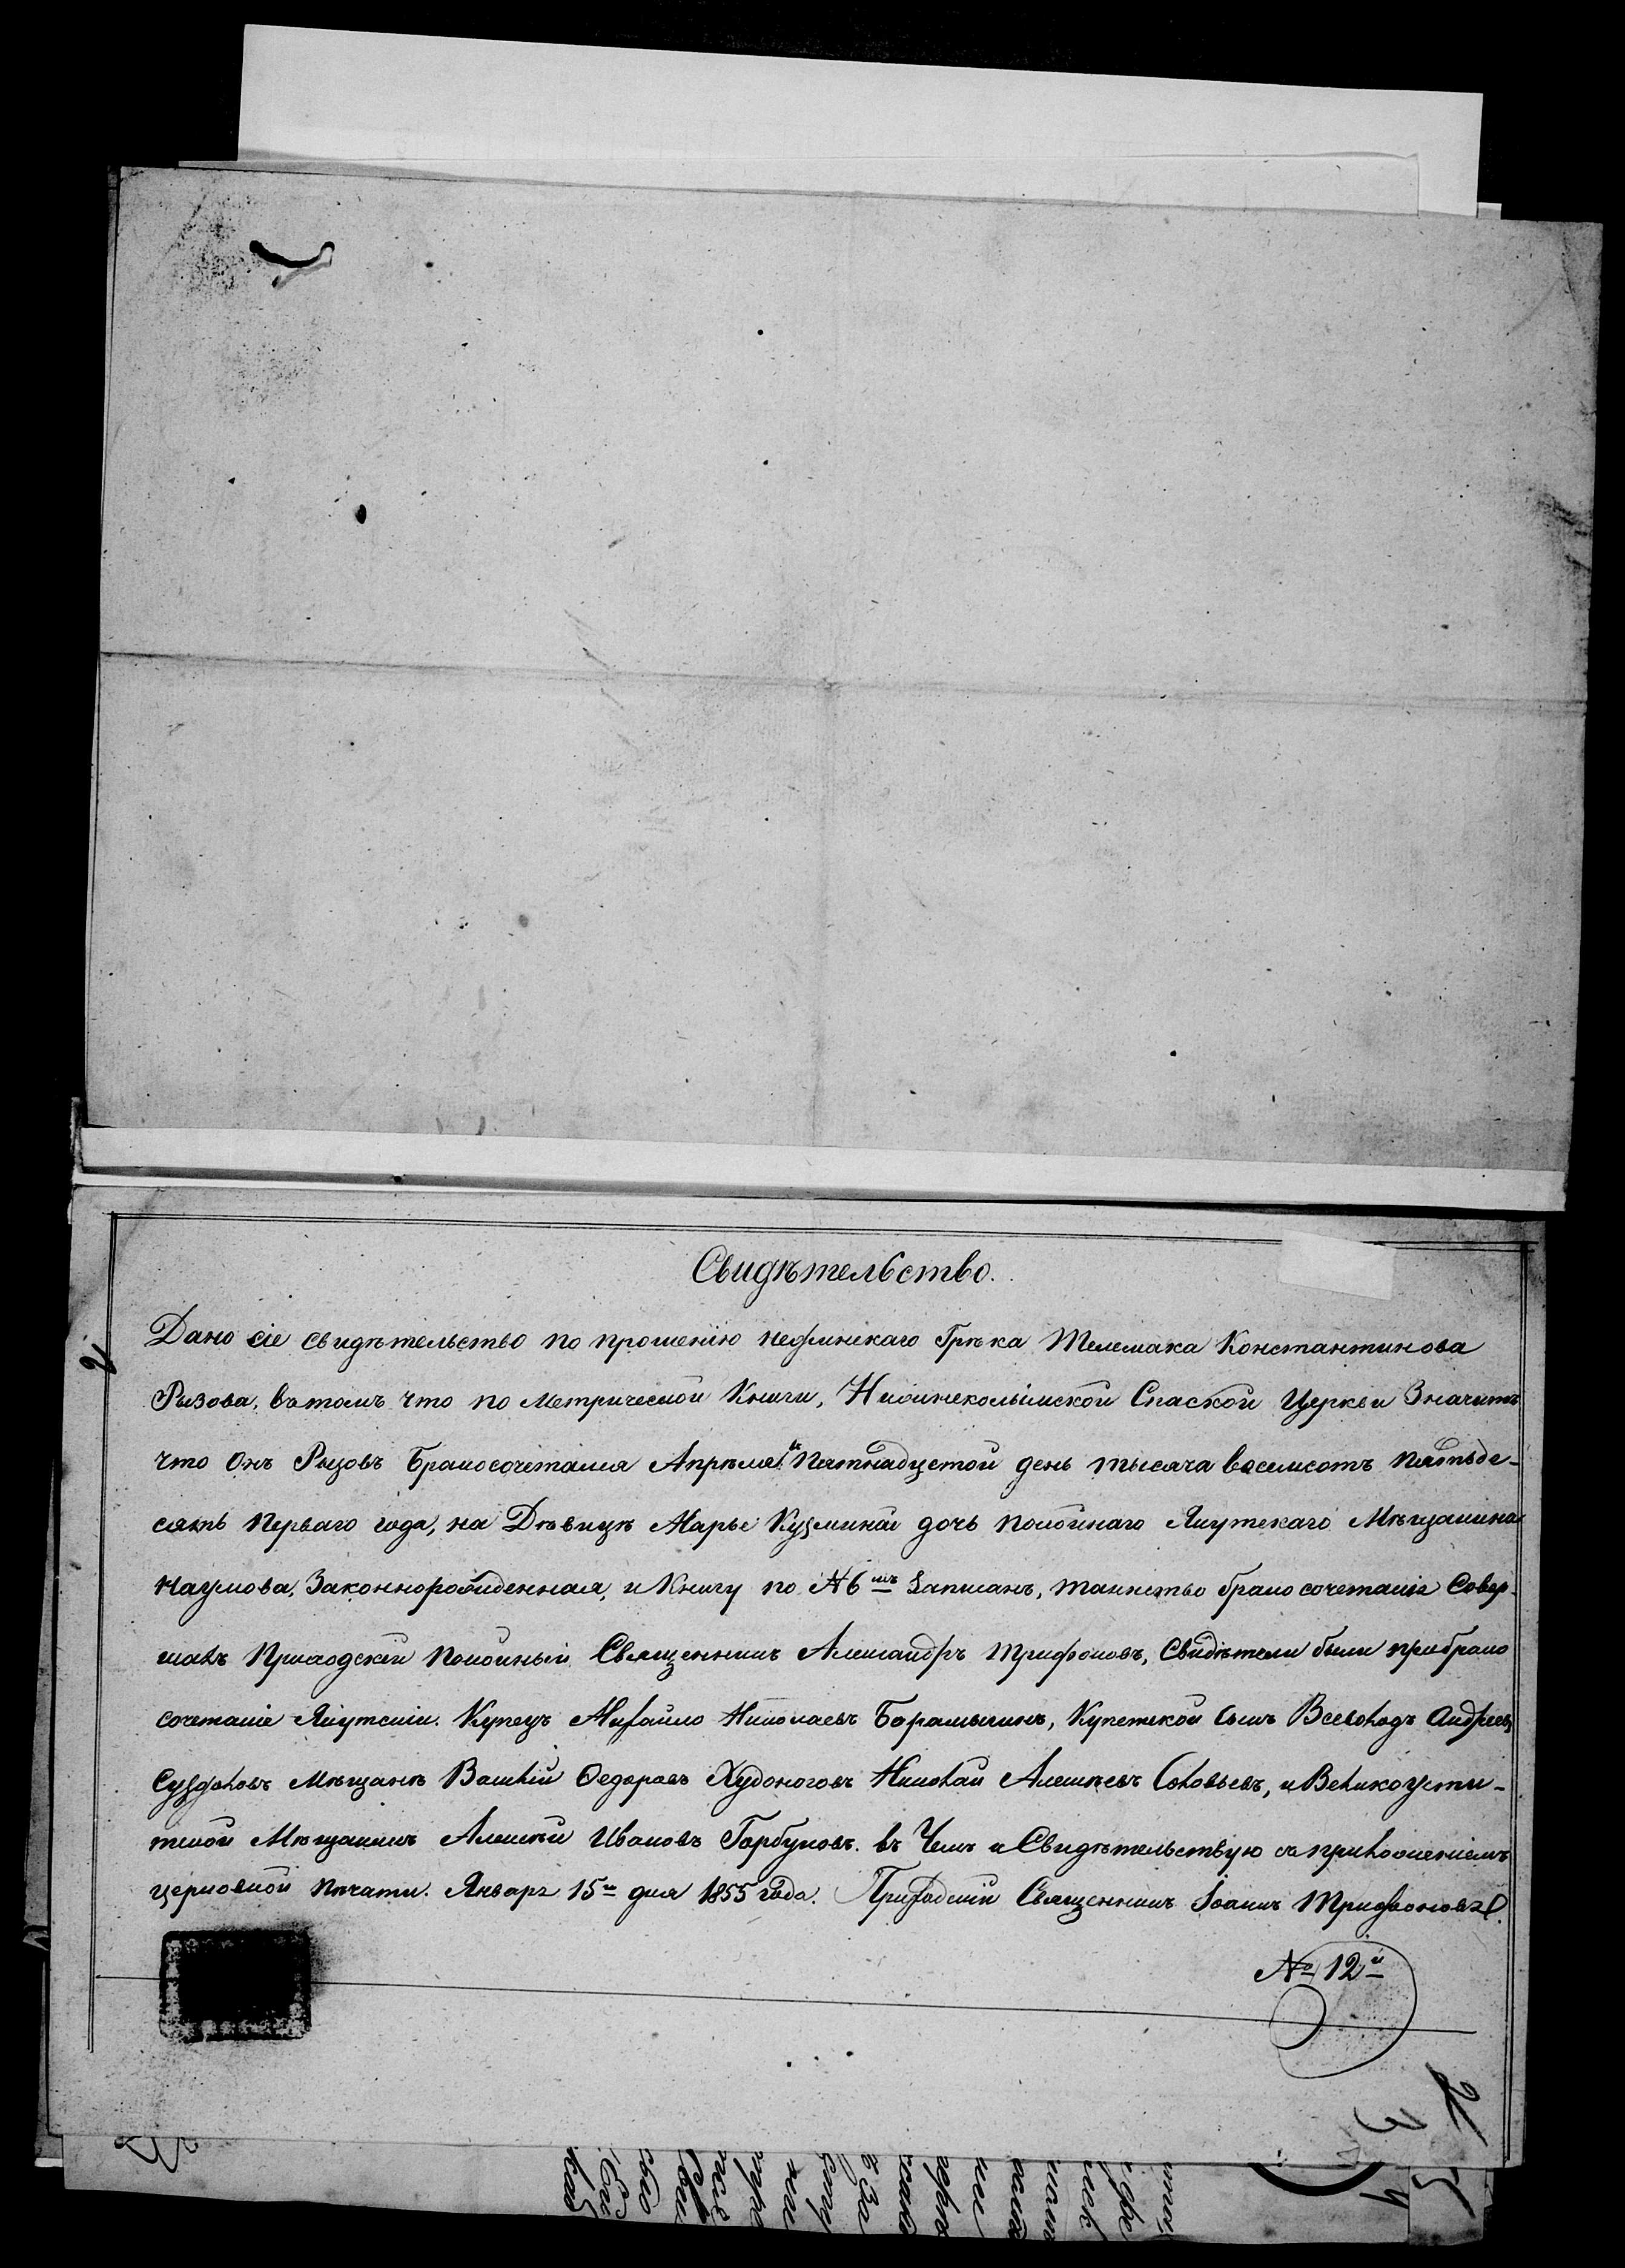 Свидѣтельство.
Дано сіе свидѣтельство по прошенію нефинскаго Грѣка Телемака Константинова
Ризова, въ томъ что по Метрической Книги, Нижнеколымской Спаской Церкви Значитъ
что Онъ Ризовъ Бракосочетался Апрѣля въ Пятнадцатой день тысяча восемсотъ пятьде-
сятъ Перваго года, на Дѣвицѣ Марье Кузминой дочь покойнаго Якутскаго Мѣщанина
Наумова, Законнорожденная, и Книгу по №6мъ Записанъ, таинство брако сочетанія Совер-
шалъ Приходскій покойный Священникъ Александръ Трифоновъ, Свидѣтели были при брако
сочетаніе Якутскіи Купецъ Михайло Николаевъ Барамыгинъ, Купетской сынъ Всеволодъ Андреевъ
Суздаловъ Мѣщанѣ Василій Ѳедоровъ Худоноговъ Николай Алексѣевъ Соловьевъ, и Великоусти-
тской Мѣщанинъ Алексѣй Ивановъ Горбуновъ. въ Чемъ и Свидѣтельствую съ приложеніемъ
церковной Пѣчати. Январь 15го дня 1855 года. Приходскій Священникъ Іоаннъ Трифоновъ.
№ 12й
2
3
4
5